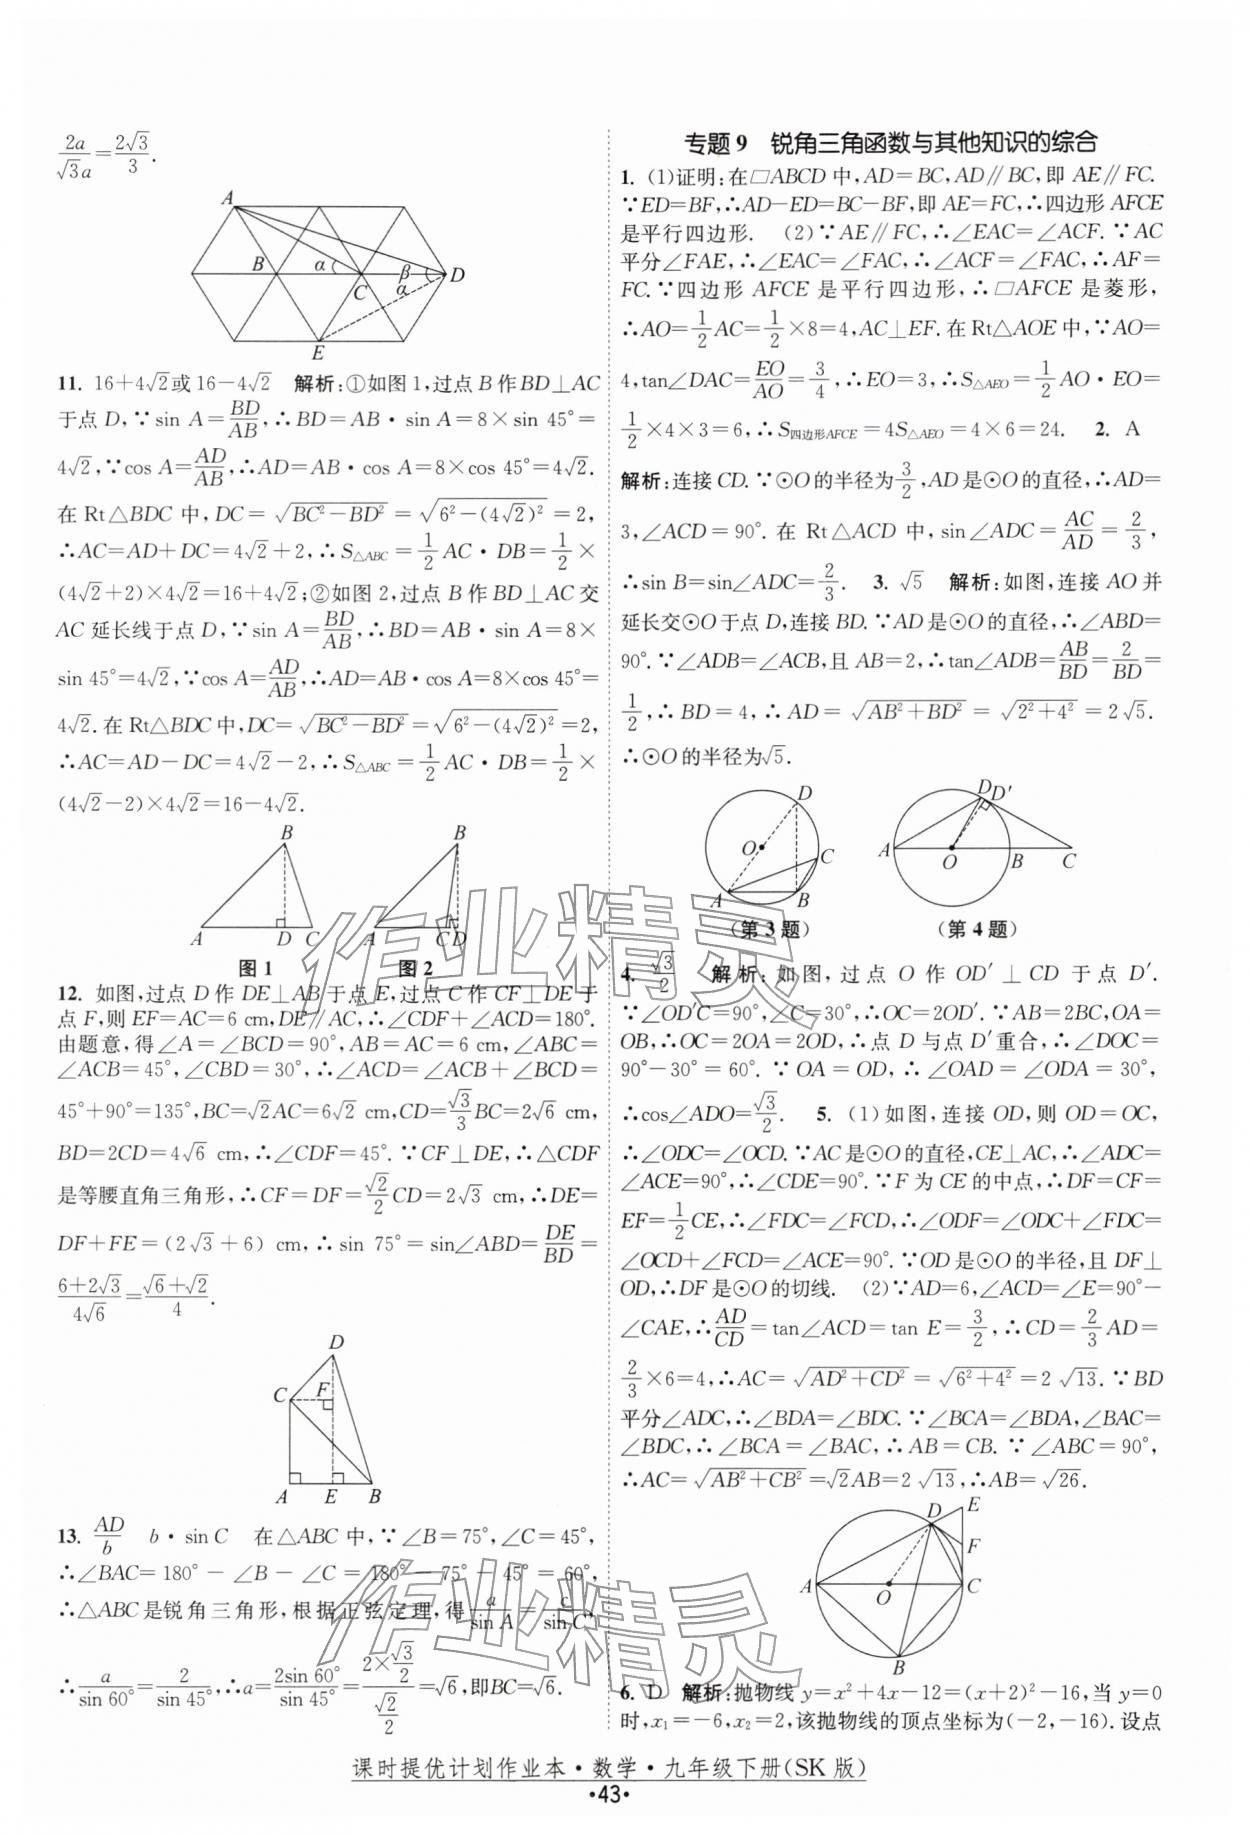 2a/√3a=2√3/3.
A
B α C β D
α
E
11. 16+4√2或16-4√2 解析:①如图1,过点B作BD⊥AC
于点D,∵sin A=BD/AB,∴BD=AB·sin A=8×sin 45°=
4√2,∵cos A=AD/AB,∴AD=AB·cos A=8×cos 45°=4√2.
在Rt△BDC中,DC=√(BC²-BD²)=√(6²-(4√2)²)=2,
∴AC=AD+DC=4√2+2,∴S△ABC=1/2AC·DB=1/2×
(4√2+2)×4√2=16+4√2;②如图2,过点B作BD⊥AC交
AC延长线于点D,∵sin A=BD/AB,∴BD=AB·sin A=8×
sin 45°=4√2,∵cos A=AD/AB,∴AD=AB·cos A=8×cos 45°=
4√2.在Rt△BDC中,DC=√(BC²-BD²)=√(6²-(4√2)²)=2,
∴AC=AD-DC=4√2-2,∴S△ABC=1/2AC·DB=1/2×
(4√2-2)×4√2=16-4√2.
B B
A D C A C D
图1 图2
12. 如图,过点D作DE⊥AB于点E,过点C作CF⊥DE于
点F,则EF=AC=6 cm,DE∥AC,∴∠CDF+∠ACD=180°.
由题意,得∠A=∠BCD=90°,AB=AC=6 cm,∠ABC=
∠ACB=45°,∠CBD=30°,∴∠ACD=∠ACB+∠BCD=
45°+90°=135°,BC=√2AC=6√2 cm,CD=√3/3BC=2√6 cm,
BD=2CD=4√6 cm,∴∠CDF=45°.∵CF⊥DE,∴△CDF
是等腰直角三角形,∴CF=DF=√2/2CD=2√3 cm,∴DE=
DF+FE=(2√3+6) cm,∴sin 75°=sin∠ABD=DE/BD=
(6+2√3)/4√6=(√6+√2)/4.
D
C F
A E B
13. AD/b b·sin C 在△ABC中,∵∠B=75°,∠C=45°,
∴∠BAC=180°-∠B-∠C=180°-75°-45°=60°,
∴△ABC是锐角三角形,根据正弦定理,得a/sin A=c/sin C,
∴a/sin 60°=2/sin 45°,∴a=2sin 60°/sin 45°=(2×√3/2)/(√2/2)=√6,即BC=√6.
专题9 锐角三角函数与其他知识的综合
1. (1)证明:在□ABCD中,AD=BC,AD∥BC,即AE∥FC.
∵ED=BF,∴AD-ED=BC-BF,即AE=FC,∴四边形AFCE
是平行四边形. (2)∵AE∥FC,∴∠EAC=∠ACF.∵AC
平分∠FAE,∴∠EAC=∠FAC,∴∠ACF=∠FAC,∴AF=
FC.∵四边形AFCE是平行四边形,∴□AFCE是菱形,
∴AO=1/2AC=1/2×8=4,AC⊥EF.在Rt△AOE中,∵AO=
4,tan∠DAC=EO/AO=3/4,∴EO=3,∴S△AEO=1/2AO·EO=
1/2×4×3=6,∴S四边形AFCE=4S△AEO=4×6=24. 2. A
解析:连接CD.∵⊙O的半径为3/2,AD是⊙O的直径,∴AD=
3,∠ACD=90°.在Rt△ACD中,sin∠ADC=AC/AD=2/3,
∴sin B=sin∠ADC=2/3. 3. √5 解析:如图,连接AO并
延长交⊙O于点D,连接BD.∵AD是⊙O的直径,∴∠ABD=
90°.∵∠ADB=∠ACB,且AB=2,∴tan∠ADB=AB/BD=2/BD=
1/2,∴BD=4,∴AD=√(AB²+BD²)=√(2²+4²)=2√5.
∴⊙O的半径为√5.
D
O
C
A B
(第3题)
D D′
A O B C
(第4题)
4. √3/2 解析:如图,过点O作OD′⊥CD于点D′.
∵∠OD′C=90°,∠C=30°,∴OC=2OD′.∵AB=2BC,OA=
OB,∴OC=2OA=2OD,∴点D与点D′重合,∴∠DOC=
90°-30°=60°.∵OA=OD,∴∠OAD=∠ODA=30°,
∴cos∠ADO=√3/2. 5. (1)如图,连接OD,则OD=OC,
∴∠ODC=∠OCD.∵AC是⊙O的直径,CE⊥AC,∴∠ADC=
∠ACE=90°,∴∠CDE=90°.∵F为CE的中点,∴DF=CF=
EF=1/2CE,∴∠FDC=∠FCD,∴∠ODF=∠ODC+∠FDC=
∠OCD+∠FCD=∠ACE=90°.∵OD是⊙O的半径,且DF⊥
OD,∴DF是⊙O的切线. (2)∵AD=6,∠ACD=∠E=90°-
∠CAE,∴AD/CD=tan∠ACD=tan E=3/2,∴CD=2/3AD=
2/3×6=4,∴AC=√(AD²+CD²)=√(6²+4²)=2√13.∵BD
平分∠ADC,∴∠BDA=∠BDC.∵∠BCA=∠BDA,∠BAC=
∠BDC,∴∠BCA=∠BAC,∴AB=CB.∵∠ABC=90°,
∴AC=√(AB²+CB²)=√2AB=2√13,∴AB=√26.
D E
F
A O C
B
6. D 解析:抛物线y=x²+4x-12=(x+2)²-16,当y=0
时,x₁=-6,x₂=2,该抛物线的顶点坐标为(-2,-16).设点
作业精灵
作业精灵
课时提优计划作业本·数学·九年级下册(SK版)
·43·